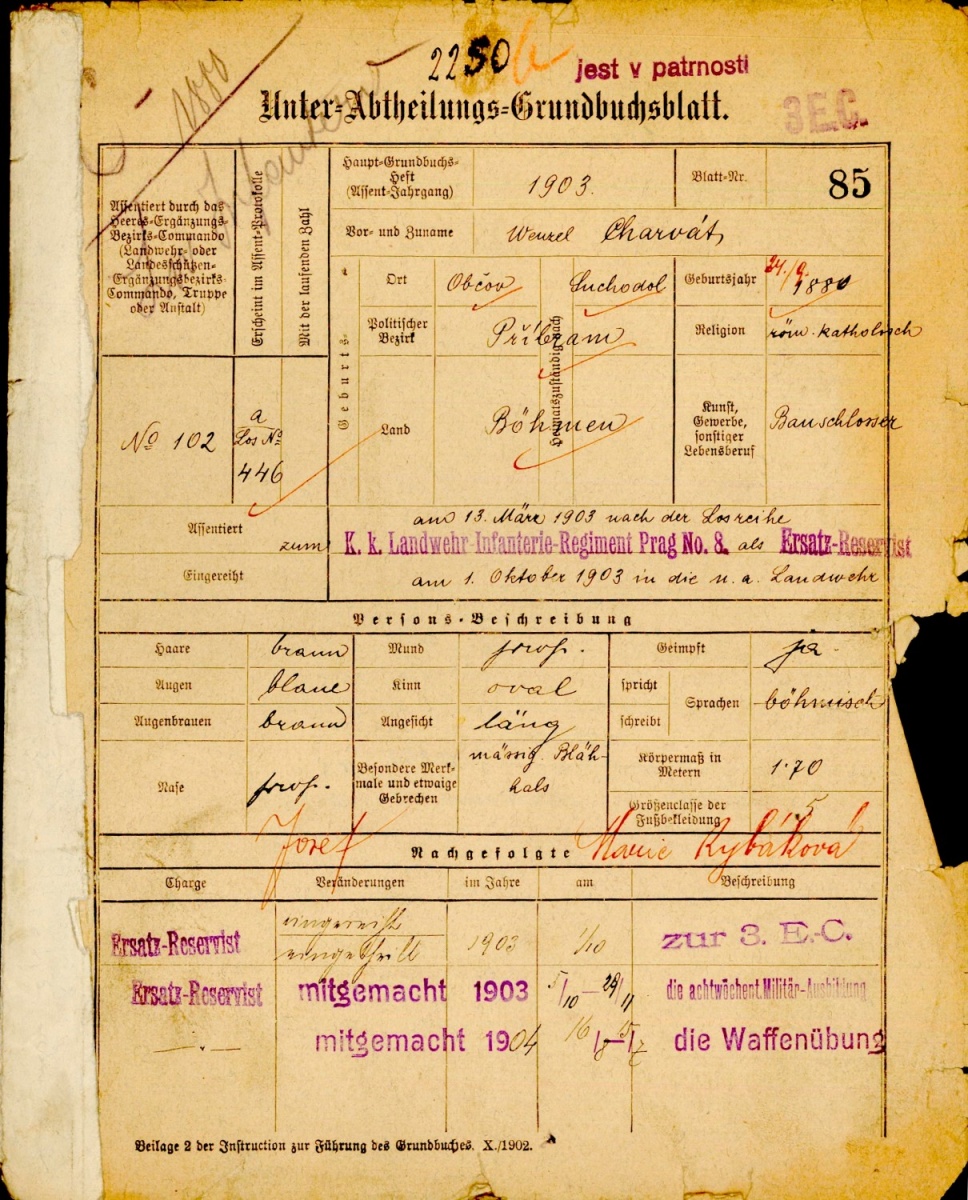 2250
jest v patrnosti
Unter-Abtheilungs-Grundbuchsblatt.
3 E.C.
1880
Assentiert durch das Heeres-Ergänzungs-Bezirks-Commando (Landwehr- oder Landesschützen-Ergänzungsbezirks-Commando, Truppe oder Anstalt)
Erscheint im Assent-Protokolle
Mit der laufenden Zahl
Haupt-Grundbuchs-Heft (Assent-Jahrgang)
1903.
Blatt-Nr.
85
Vor- und Zuname
Wenzel Charvát
Geburts-
Ort
Občov
Heimatszuständig nach
Suchodol
Geburtsjahr
1880
Politischer Bezirk
Příbram
Religion
röm. katholisch
Nº 102
a
Los Nº
446
Land
Böhmen
Kunst, Gewerbe, sonstiger Lebensberuf
Bauschlosser
Assentiert
am 13. März 1903 nach der Losreihe
zum K. k. Landwehr-Infanterie-Regiment Prag No. 8. als Ersatz-Reservist
Eingereiht
am 1. Oktober 1903 in die n. a. Landwehr
Persons-Beschreibung
Haare braun
Mund prop.
Geimpft ja
Augen blaue
Kinn oval
spricht
schreibt
Sprachen
böhmisch
Augenbrauen braun
Angesicht läng
Nase prop.
Besondere Merkmale und etwaige Gebrechen
mässig. Bläh-
hals
Körpermaß in Metern
1·70
Größenclasse der Fußbekleidung
5
Josef
Marie Rybáková
Nachgefolgte
Charge
Veränderungen
im Jahre
am
Beschreibung
Ersatz-Reservist
eingereiht
eingetheilt
1903
1/10
zur 3. E.-C.
Ersatz-Reservist mitgemacht 1903 5/10 – 29/11 die achtwöchent. Militär-Ausbildung
mitgemacht 1904 die Waffenübung
Beilage 2 der Instruction zur Führung des Grundbuches. X./1902.